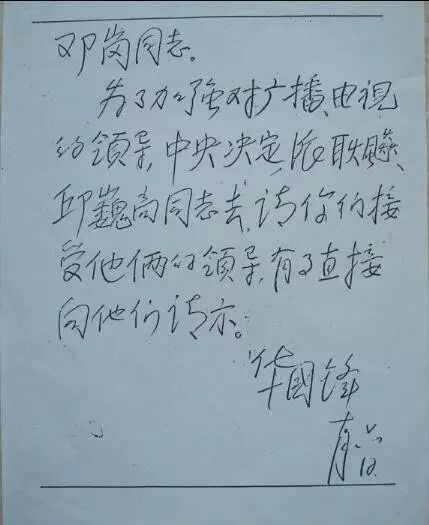 邓岗同志.
为了加强对广播、电视
的领导,中央决定,派耿飚、
邱巍高同志去,请你们接
受他俩的领导,有了直接
向他们请示。
华国锋
十月六日